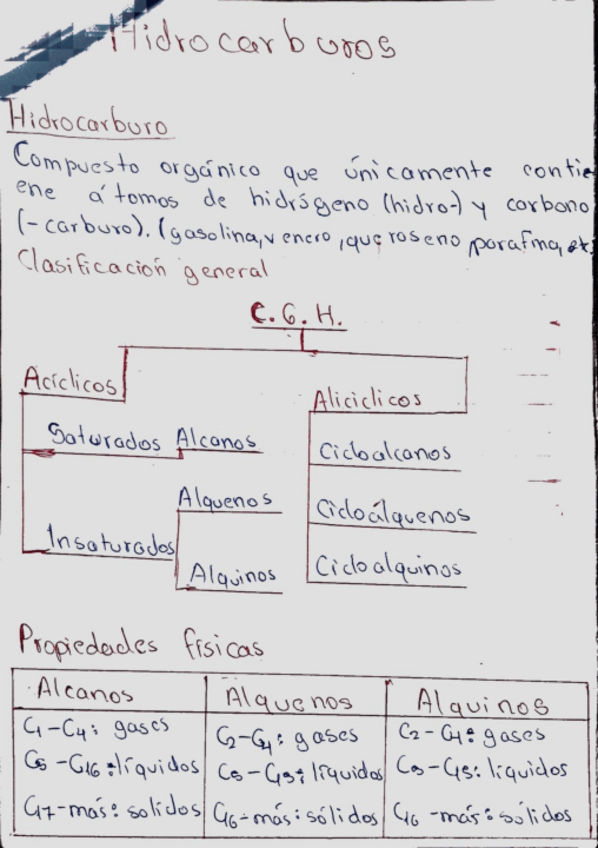 Hidrocarburos
Hidrocarburo
Compuesto orgánico que únicamente contie
ene átomos de hidrógeno (hidro-) y carbono
(-carburo). (gasolina, v enero, queroseno, parafina, etc.
Clasificación general
C.G.H.
Acíclicos
Aliciclicos
Saturados Alcanos
Cicloalcanos
Alquenos
Cicloálquenos
Insaturados
Alquinos
Cicloalquinos
Propiedades físicas
Alcanos Alquenos Alquinos
C1-C4: gases C2-C4: gases C2-C4: gases
C5-C16: líquidos C5-C15: líquidos C5-C15: líquidos
C17-más: solidos C16-más: sólidos C16-más: sólidos